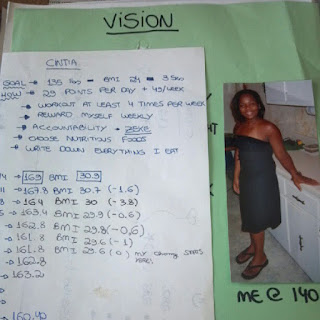 VISION
CINTIA
GOAL → 135 lbs - BMI 24
HOW → 29 POINTS PER DAY + 49/WEEK
→ WORKOUT AT LEAST 4 TIMES PER WEEK
→ REWARD MYSELF WEEKLY
→ ACCOUNTABILITY -
→ CHOOSE NUTRITIOUS FOODS
→ WRITE DOWN EVERYTHING I EAT
169 BMI 30.9
→ 167.8 BMI 30.7 (-1.6)
→ 164 BMI 30 (-3.8)
→ 163.4 BMI 29.9 (-0.6)
→ 162.8 BMI 29.8 (-0,6)
→ 161.8 BMI 29.6 (-1)
→ 161.8 BMI 29.6 (0) MY STARTS HERE!
→ 162.8
→ 163.2
→ 160.40
ME @ 140